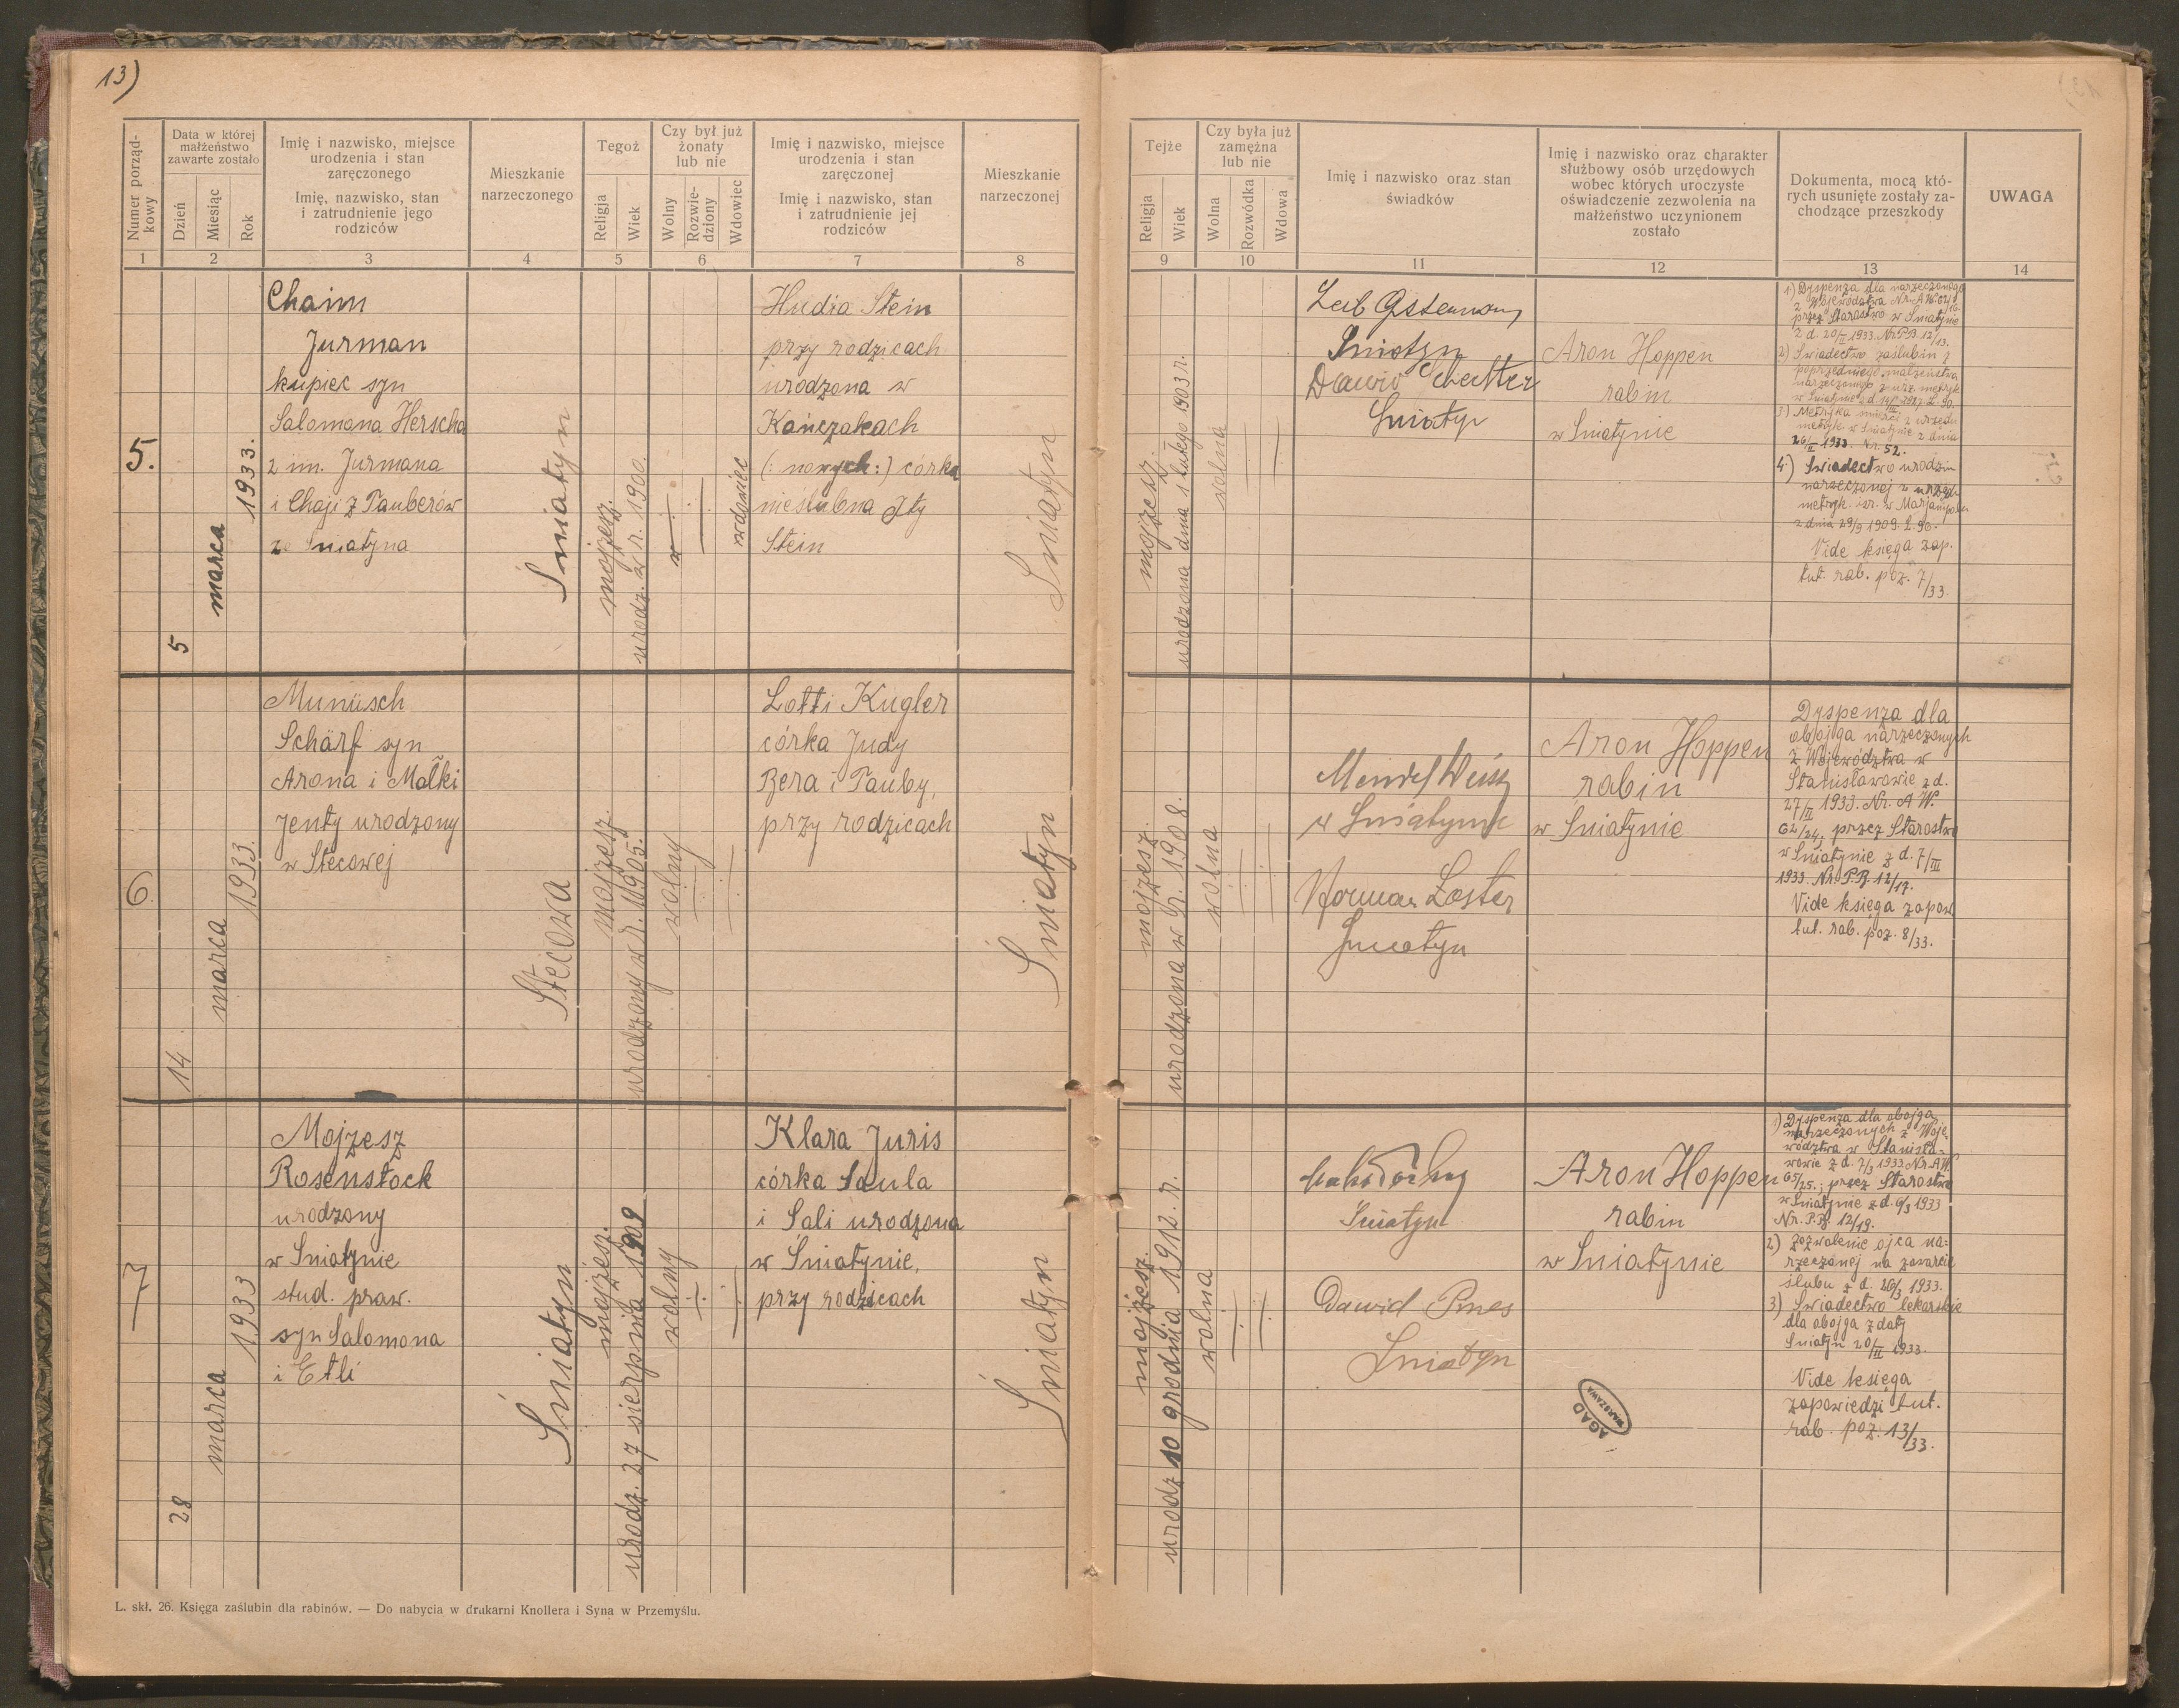 13)
Numer porząd-
kowy
Data w której
małżeństwo
zawarte zostało
Dzień
Miesiąc
Rok
Imię i nazwisko, miejsce
urodzenia i stan
zaręczonego
Imię, nazwisko, stan
i zatrudnienie jego
rodziców
Mieszkanie
narzeczonego
Tegoż
Religja
Wiek
Czy był już
żonaty
lub nie
Wolny
Rozwie-
dziony
Wdowiec
Imię i nazwisko, miejsce
urodzenia i stan
zaręczonej
Imię i nazwisko, stan
i zatrudnienie jej
rodziców
Mieszkanie
narzeczonej
Tejże
Religja
Wiek
Czy była już
zamężna
lub nie
Wolna
Rozwódka
Wdowa
Imię i nazwisko oraz stan
świadków
Imię i nazwisko oraz charakter
służbowy osób urzędowych
wobec których uroczyste
oświadczenie zezwolenia na
małżeństwo uczynionem
zostało
Dokumenta, mocą któ-
rych usunięte zostały za-
chodzące przeszkody
UWAGA
1 2 3 4 5 6 7 8 9 10 11 12 13 14
5.
5
marca
1933.
Chaim
Jurman
kupiec syn
Salomona Herscha
2 im. Jurmana
i Chaji z Tauberów
ze Śniatyna
Śniatyn
mojżesz.
urodz. w r. 1900.
wdowiec
Hudia Stein
przy rodzicach
urodzona w
Kańczakach
(: nowych :) córka
nieślubna Ity
Stein
Śniatyn
mojżesz.
urodzona dnia 1 lutego 1903 r.
wolna
Leib
Śniatyn
Dawid Schechter
Śniatyn
Aron Hoppen
rabin
w Śniatynie
1) Dyspenza dla narzeczonego
z Województwa Nr. A.W. 62/
przez Starostwo w Śniatynie
z d. 20/II 1933. Nr. P.B. 12/13.
2) Świadectwo zaślubin z
poprzedniego małżeństwa
narzeczonego z urz. metryk
w Śniatynie z d.
3) Metryka śmierci z urzędu
metryk. w Śniatynie z dnia
26/II 1933. Nr. 52.
4) Świadectwo urodzin
narzeczonej z urzędu
metryk. izr. w Marjampolu
z dnia 29/9 1909. L. 90.
Vide księga zap.
tut. rab. poz. 7/33.
6
14
marca
1933.
Munisch
Schärf syn
Arona i Małki
Jenty urodzony
w Stecowej
Stecowa
mojżesz.
urodzony w r. 1905.
wolny
Lotti Kugler
córka Judy
Bera i Tauby,
przy rodzicach
Śniatyn
mojżesz.
urodzona w r. 1908.
wolna
Mendel Weisz
w Śniatynie
Norman Loster
Śniatyn
Aron Hoppen
rabin
w Śniatynie
Dyspenza dla
obojga narzeczonych
z Województwa w
Stanisławowie z d.
27/II 1933. Nr. A.W.
62/24, przez Starostwo
w Śniatynie z d. 7/III
1933. Nr. P.B. 12/17.
Vide księga zapow.
tut. rab. poz. 8/33.
7
28
marca
1933
Mojżesz
Rosenstock
urodzony
w Śniatynie
stud. praw.
syn Salomona
i Etli
Śniatyn
mojżesz.
urodz. 27 sierpnia 1909
wolny
Klara Juris
córka Saula
i Sali urodzona
w Śniatynie,
przy rodzicach
Śniatyn
mojżesz.
urodz 10 grudnia 1912. r.
wolna
Śniatyn
Dawid Pines
Śniatyn
Aron Hoppen
rabin
w Śniatynie
1) Dyspenza dla obojga
narzeczonych z Woje-
wództwa w Stanisła-
wowie z d. 7/3 1933. Nr. A.W.
65/25.; przez Starostwo
w Śniatynie z d. 6/3 1933
Nr. P.B. 12/19.
2) Zezwolenie ojca na-
rzeczonej na zawarcie
ślubu z d. 26/3 1933.
3) Świadectwo lekarskie
dla obojga z daty
Śniatyn 20/II 1933.
Vide księga
zapowiedzi tut.
rab. poz. 13/33.
AGAD
WARSZAWA
L. skł. 26. Księga zaślubin dla rabinów. — Do nabycia w drukarni Knollera i Syna w Przemyślu.